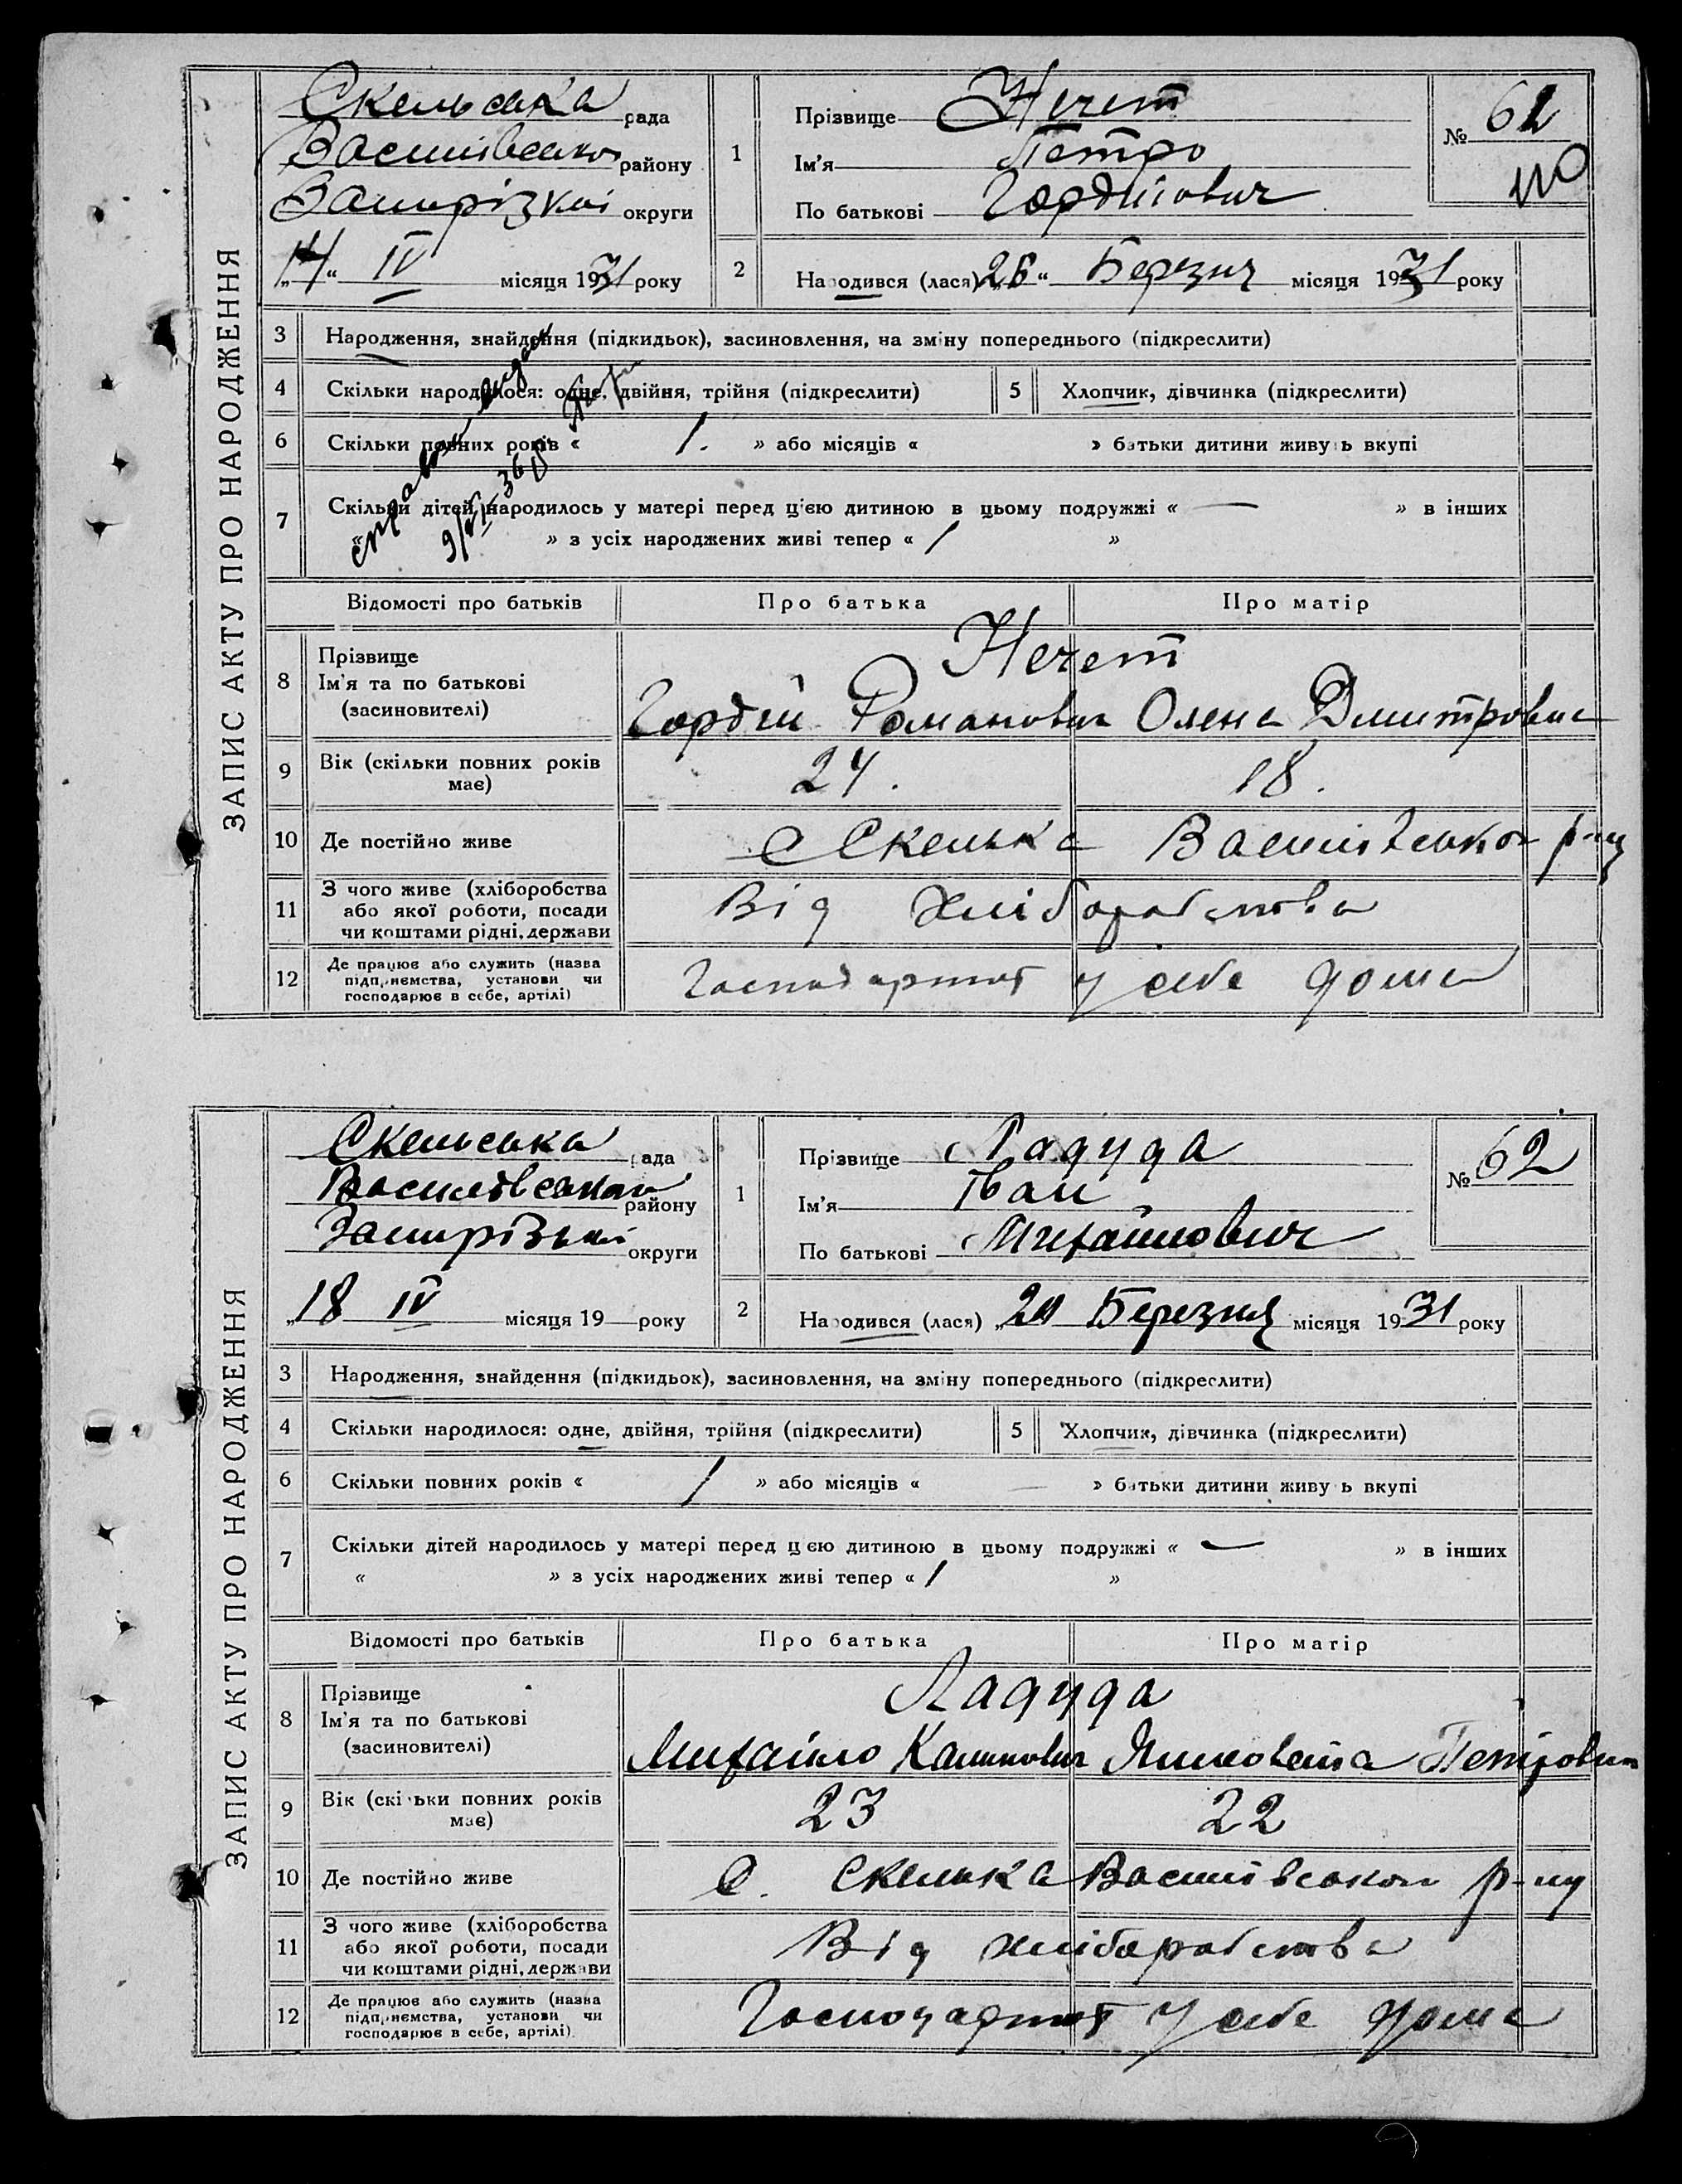 ЗАПИС АКТУ ПРО НАРОДЖЕННЯ
Скельська рада
Василівського району
Запорізької округи
"14" IV місяця 1931 року
1 Прізвище Нечет
Ім'я Петро
По батькові Гордійович
№ 61
2 Народився (лася) "26" Березня місяця 1931 року
3 Народження, знайдення (підкидьок), засиновлення, на зміну попереднього (підкреслити)
4 Скільки народилося: одне, двійня, трійня (підкреслити) 5 Хлопчик, дівчинка (підкреслити)
6 Скільки повних років « 1. » або місяців « » батьки дитини живуть вкупі
7 Скільки дітей народилось у матері перед цією дитиною в цьому подружжі « — » в інших
« » з усіх народжених живі тепер « 1 »
9/VI 36
Відомості про батьків Про батька Про матір
8 Прізвище
Ім'я та по батькові
(засиновителі)
Нечет
Гордій Романович Олена Дмитровна
9 Вік (скільки повних років має) 24. 18.
10 Де постійно живе С Скелька Василівського р-ну
11 З чого живе (хліборобства
або якої роботи, посади
чи коштами рідні, держави
Від хліборобства
12 Де працює або служить (назва
підприємства, установи чи
господарює в себе, артілі)
у себе дома
ЗАПИС АКТУ ПРО НАРОДЖЕННЯ
Скельська рада
Василівського району
Запорізької округи
"18 IV місяця 19 — року
1 Прізвище Ладуда
Ім'я Іван
По батькові Михайлович
№ 62
2 Народився (лася) " Березня місяця 1931 року
3 Народження, знайдення (підкидьок), засиновлення, на зміну попереднього (підкреслити)
4 Скільки народилося: одне, двійня, трійня (підкреслити) 5 Хлопчик, дівчинка (підкреслити)
6 Скільки повних років « 1 » або місяців « — » батьки дитини живуть вкупі
7 Скільки дітей народилось у матері перед цією дитиною в цьому подружжі « — » в інших
« » з усіх народжених живі тепер « 1 »
Відомості про батьків Про батька Про матір
8 Прізвище
Ім'я та по батькові
(засиновителі)
Ладуда
Михайло Калинович Петровна
9 Вік (скільки повних років має) 23 22
10 Де постійно живе С. Скелька Василівського р-ну
11 З чого живе (хліборобства
або якої роботи, посади
чи коштами рідні, держави
Від хліборобства
12 Де працює або служить (назва
підприємства, установи чи
господарює в себе, артілі)
у себе дома